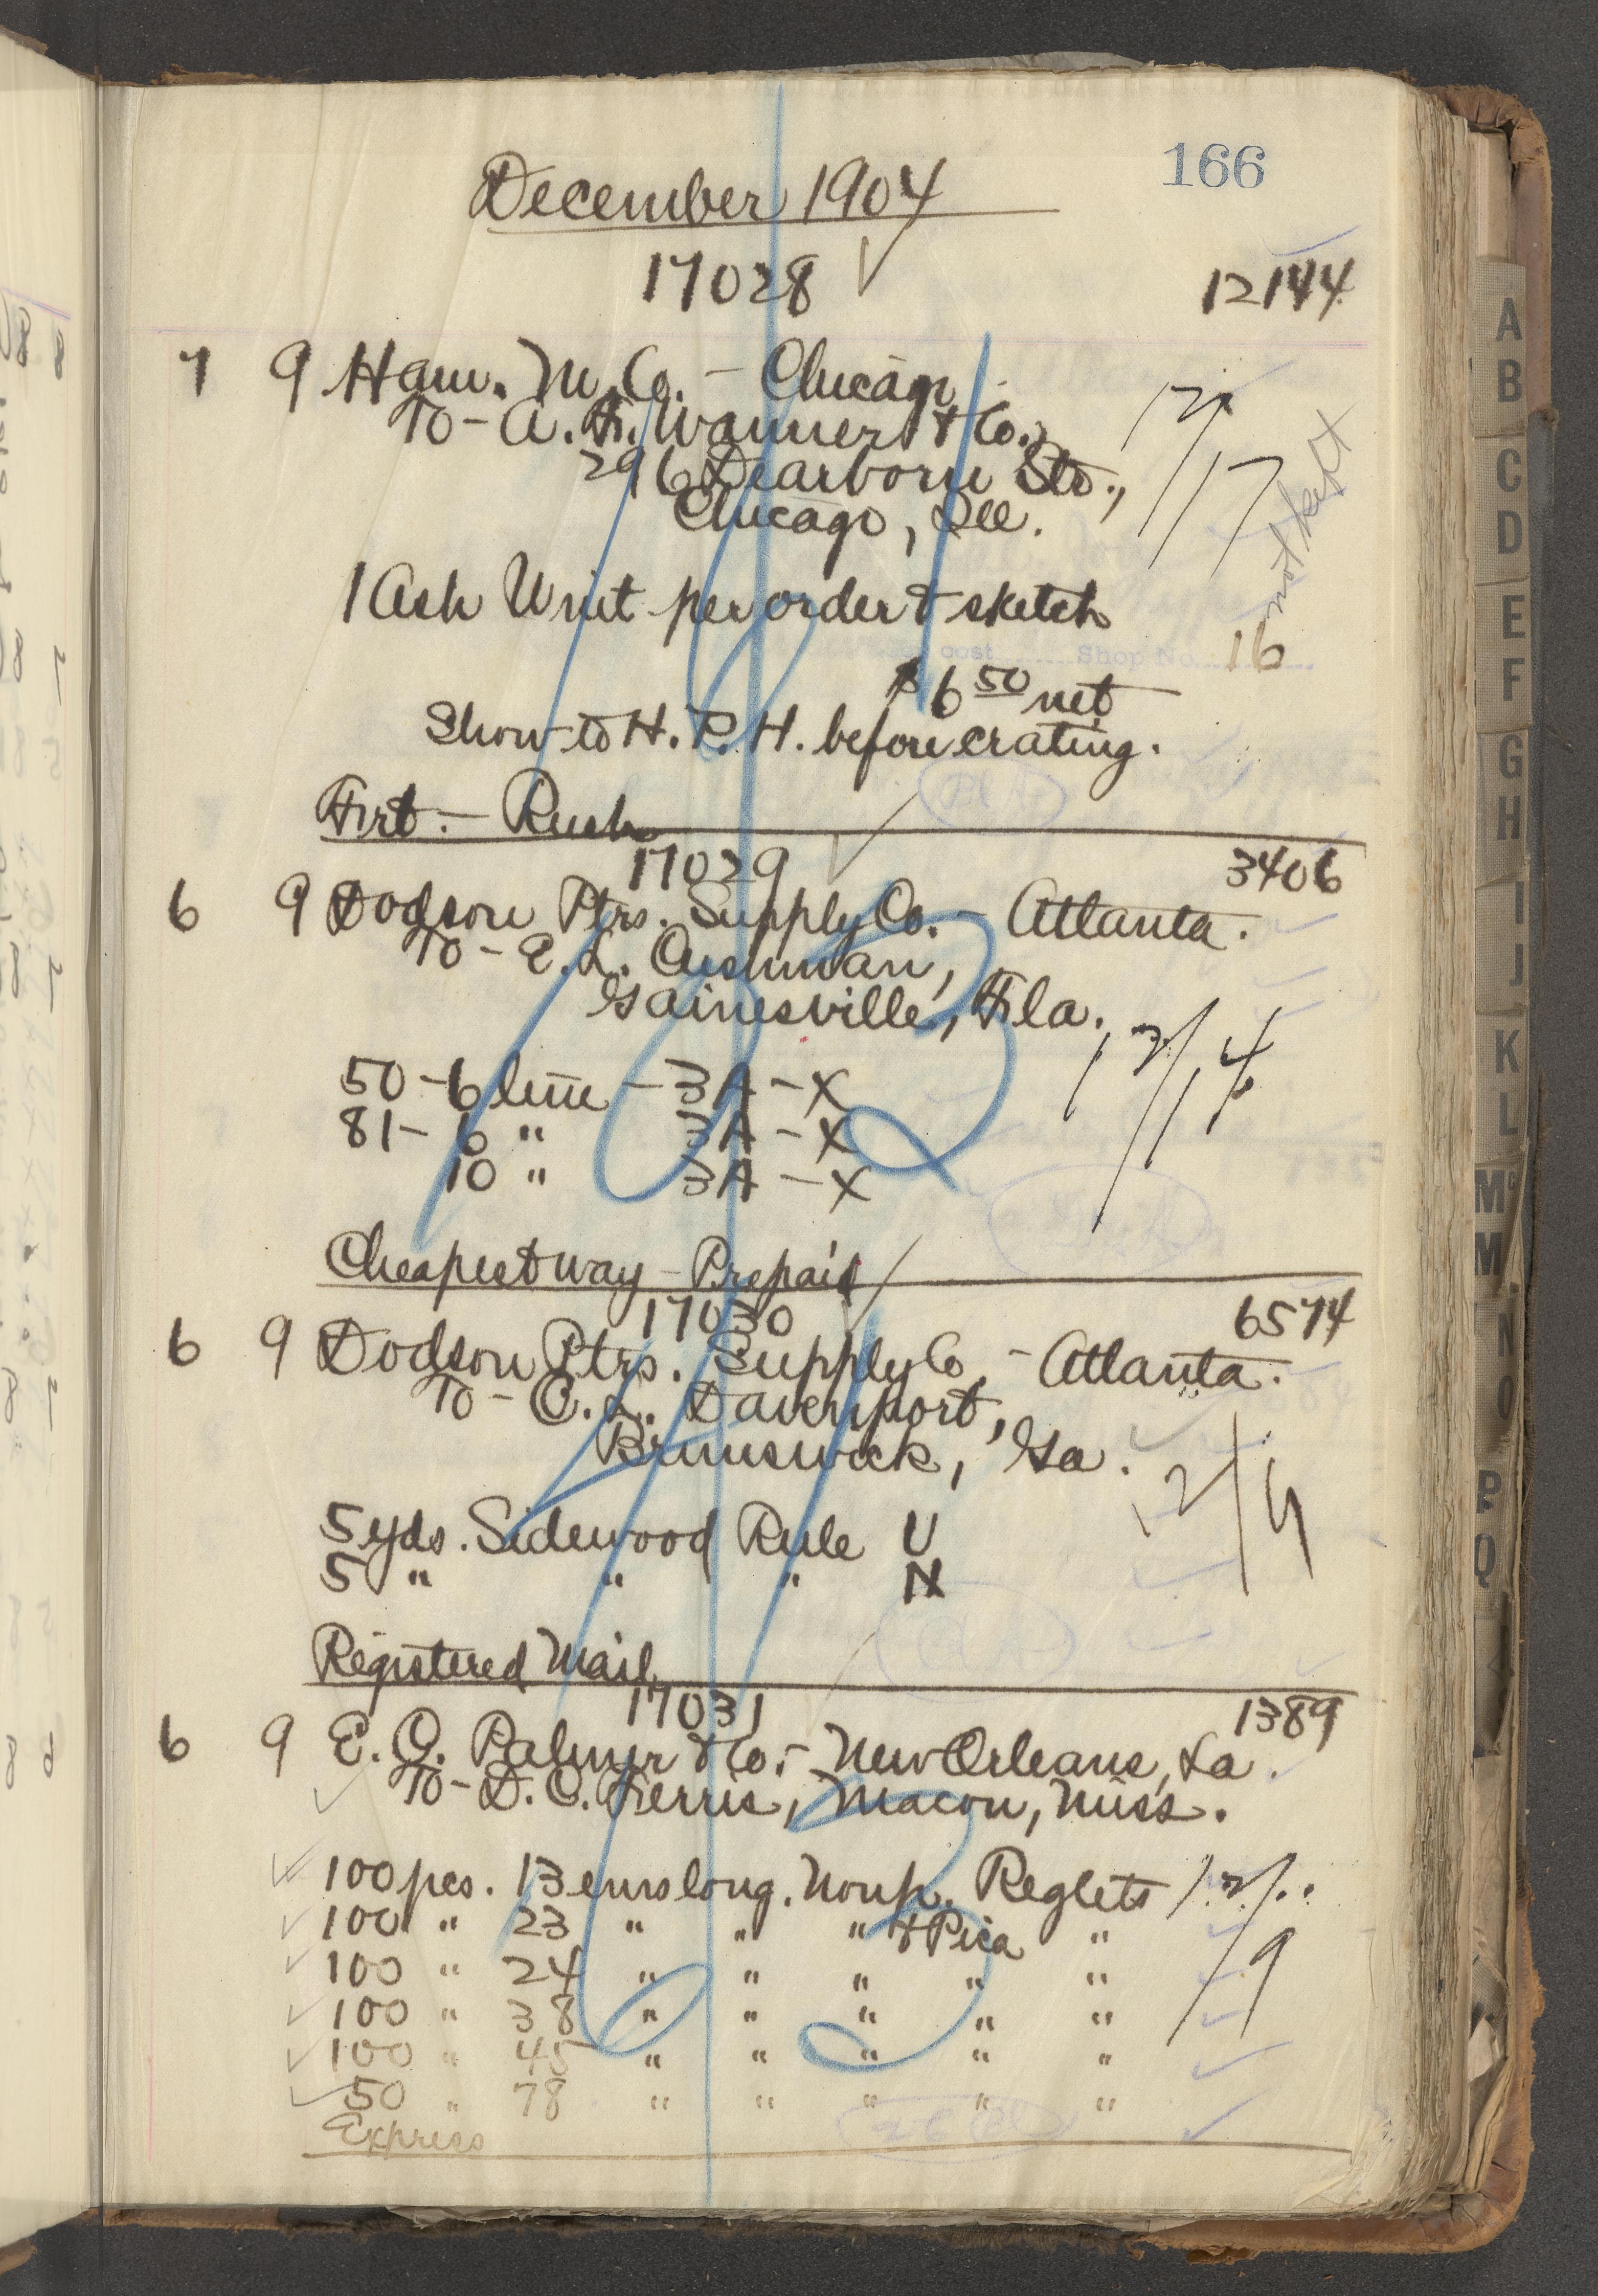 166
December 1904
17028 12144
7 9 Ham. M. Co. - Chicago
To - A. F. Wanner & Co.,
296 Dearborn St.,
Chicago, Ill.
12/17
not kept
1 Ash Unit per order & sketch
cost Shop No. 16
$6 50 net
Show to H. R. H. before crating.
Frt. - Rush
17029 3406
6 9 Dodson Ptrs. Supply Co. - Atlanta.
To - E. L. Cushman,
Gainesville, Fla.
12/14
50 - 6 line - 3A - X
81 - 6 " 3A - X
10 " 3A - X
Cheapest way - Prepaid
17030 6574
6 9 Dodson Ptrs. Supply Co. - Atlanta.
To - C. L. Davenport,
Brunswick, Ga.
12/9
5 yds. Sidewood Rule U
5 " " " N
Registered Mail
17031 1389
6 9 E. O. Palmer & Co. - New Orleans, La.
To - D. C. Ferris, Macon, Miss.
100 pcs. 13 ems long. Nonp. Reglets 12/9
100 " 23 " " " & Pica "
100 " 24 " " " " "
100 " 38 " " " " "
100 " 45 " " " " "
50 " 78 " " " " "
Express
A
B
C
D
E
F
G
H
I
J
K
L
Mc
M
N
O
P
Q